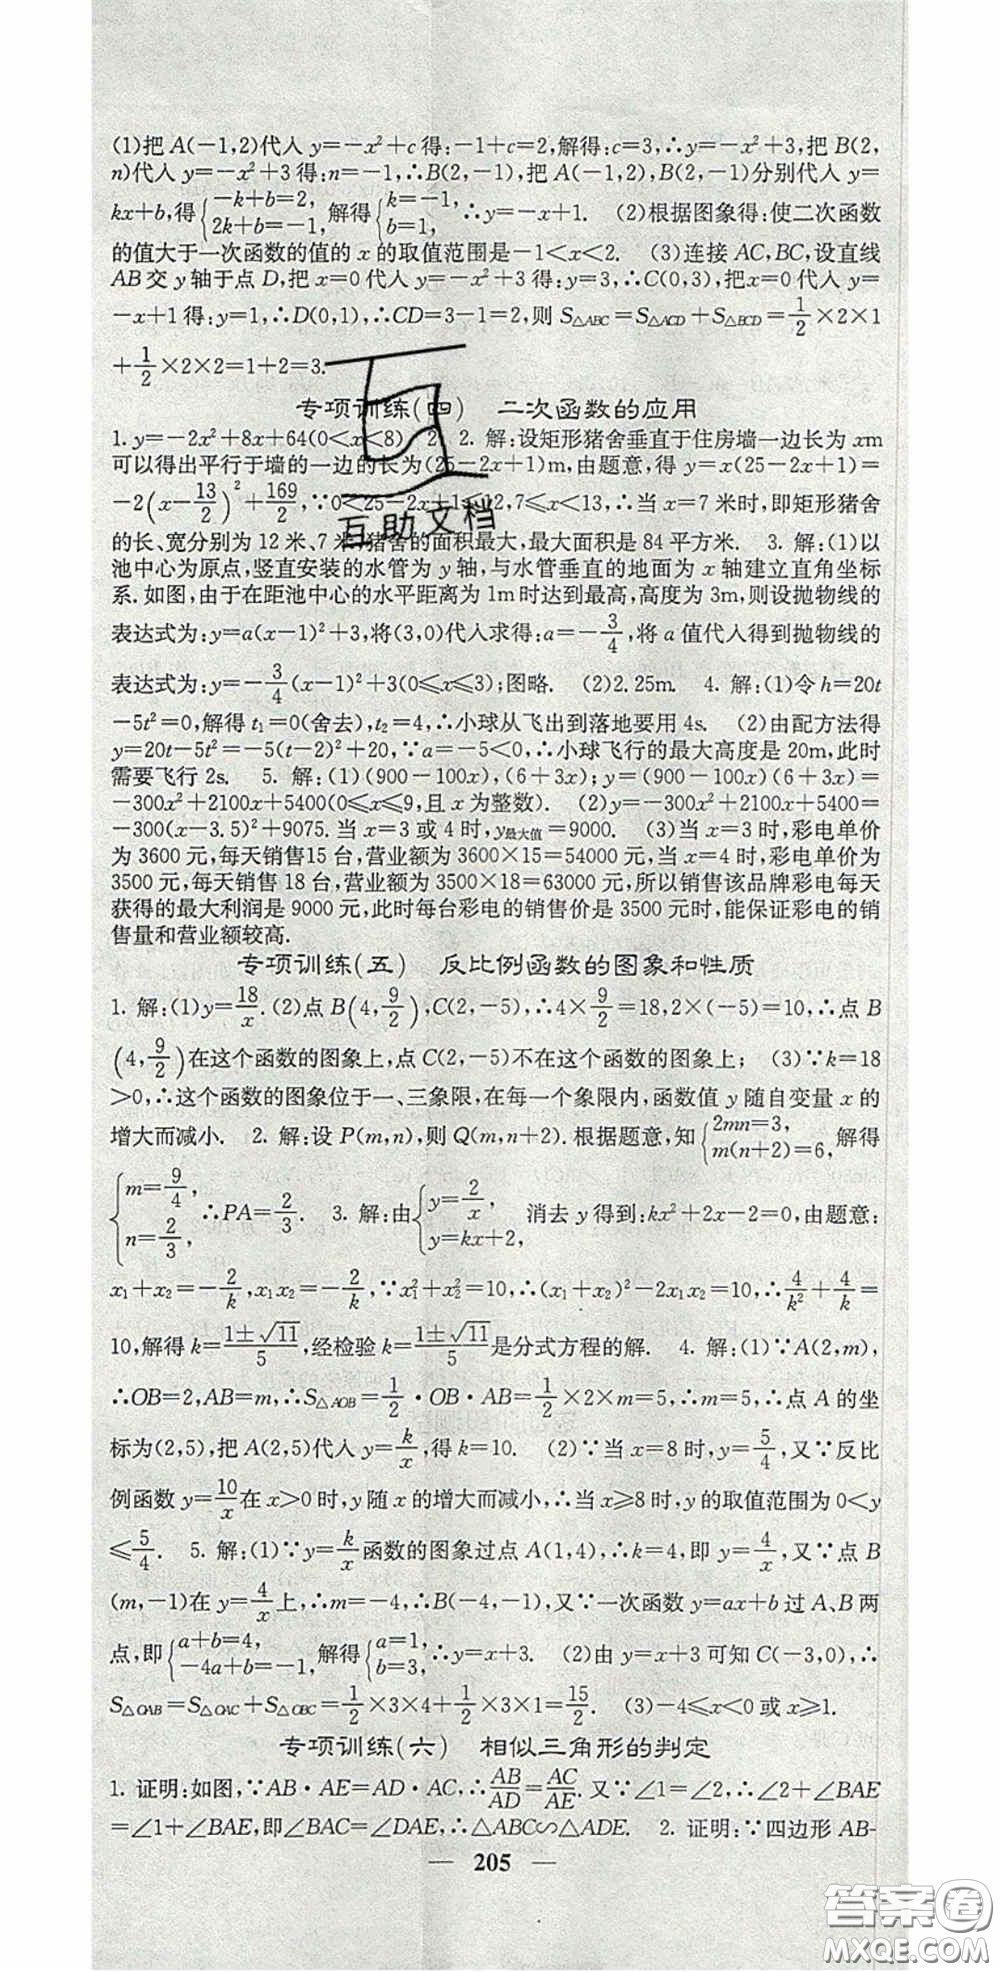 (1)把 A(－1,2)代人 y=－x²+c 得:－1+c=2,解得:c=3,∴y=－x²+3,把 B(2,
n)代人 y=－x²+3得:n=－1,∴B(2,－1),把 A(－1,2),B(2,－1)分别代人 y=
kx+b,得{－k+b=2, 2k+b=－1, 解得{k=－1, b=1, ∴y=－x+1. (2)根据图象得:使二次函数
的值大于一次函数的值的 x 的取值范围是－1<x<2. (3)连接 AC,BC,设直线
AB 交 y 轴于点 D,把 x=0 代人 y=－x²+3得:y=3,∴C(0,3),把x=0 代人 y=
－x+1得:y=1,∴D(0,1),∴CD=3－1=2,则 S△ABC=S△ACD+S△BCD=1/2×2×1
+1/2×2×2=1+2=3.
专项训练(四) 二次函数的应用
1. y=－2x²+8x+64(0<x<8) 2 2. 解:设矩形猪舍垂直于住房墙一边长为 xm
可以得出平行于墙的一边的长为(25－2x+1)m,由题意,得 y=x(25－2x+1)=
－2(x－13/2)²+169/2,∵0<25－2x+1≤12,7≤x<13,∴当 x=7 米时,即矩形猪舍
的长、宽分别为 12 米、7 米,猪舍的面积最大,最大面积是 84 平方米. 3. 解:(1)以
池中心为原点,竖直安装的水管为 y 轴,与水管垂直的地面为 x 轴建立直角坐标
系.如图,由于在距池中心的水平距离为 1m时达到最高,高度为 3m,则设抛物线的
表达式为:y=a(x－1)²+3,将(3,0)代人求得:a=－3/4,将 a 值代人得到抛物线的
表达式为:y=－3/4(x－1)²+3(0≤x≤3);图略. (2)2.25m. 4. 解:(1)令 h=20t
－5t²=0,解得 t₁=0(舍去),t₂=4,∴小球从飞出到落地要用 4s. (2)由配方法得
y=20t－5t²=－5(t－2)²+20,∵a=－5<0,∴小球飞行的最大高度是 20m,此时
需要飞行 2s. 5. 解:(1)(900－100x),(6+3x);y=(900－100x)(6+3x)=
－300x²+2100x+5400(0≤x≤9,且 x 为整数). (2)y=－300x²+2100x+5400=
－300(x－3.5)²+9075.当 x=3 或 4 时,y最大值=9000. (3)当 x=3 时,彩电单价
为 3600 元,每天销售15 台,营业额为 3600×15=54000 元,当 x=4 时,彩电单价为
3500 元,每天销售 18 台,营业额为 3500×18=63000 元,所以销售该品牌彩电每天
获得的最大利润是 9000 元,此时每台彩电的销售价是 3500 元时,能保证彩电的销
售量和营业额较高.
专项训练(五) 反比例函数的图象和性质
1. 解:(1)y=18/x.(2)点 B(4,9/2),C(2,－5),∴4×9/2=18,2×(－5)=10,∴点 B
(4,9/2)在这个函数的图象上,点 C(2,－5)不在这个函数的图象上; (3)∵k=18
>0,∴这个函数的图象位于一、三象限,在每一个象限内,函数值 y 随自变量 x 的
增大而减小. 2. 解:设 P(m,n),则 Q(m,n+2).根据题意,知{2mn=3, m(n+2)=6, 解得
{m=9/4, n=2/3, ∴PA=2/3. 3. 解:由{y=2/x, y=kx+2, 消去 y 得到:kx²+2x－2=0,由题意:
x₁+x₂=－2/k,x₁x₂=－2/k,∵x₁²+x₂²=10,∴(x₁+x₂)²－2x₁x₂=10,∴4/k²+4/k=
10,解得 k=(1±√11)/5,经检验 k=(1±√11)/5是分式方程的解. 4. 解:(1)∵A(2,m),
∴OB=2,AB=m,∴S△AOB=1/2·OB·AB=1/2×2×m=5,∴m=5,∴点 A 的坐
标为(2,5),把 A(2,5)代人 y=k/x,得 k=10. (2)∵当 x=8 时,y=5/4,又∵反比
例函数 y=10/x在 x>0 时,y 随 x 的增大而减小,∴当 x≥8 时,y 的取值范围为 0<y
≤5/4. 5. 解:(1)∵y=k/x函数的图象过点 A(1,4),∴k=4,即 y=4/x,又∵点 B
(m,－1)在 y=4/x上,∴m=－4,∴B(－4,－1),又∵一次函数 y=ax+b 过 A、B 两
点,即{a+b=4, －4a+b=－1, 解得{a=1, b=3, ∴y=x+3. (2)由 y=x+3 可知 C(－3,0),∴
S△OAB=S△OAC+S△OBC=1/2×3×4+1/2×3×1=15/2. (3)－4≤x<0 或 x≥1.
专项训练(六) 相似三角形的判定
1. 证明:如图,∵AB·AE=AD·AC,∴AB/AD=AC/AE.又∵∠1=∠2,∴∠2+∠BAE
=∠1+∠BAE,即∠BAC=∠DAE,∴△ABC∽△ADE. 2. 证明:∵四边形 AB-
— 205 —
互助文档
答案圈
MXQE.COM